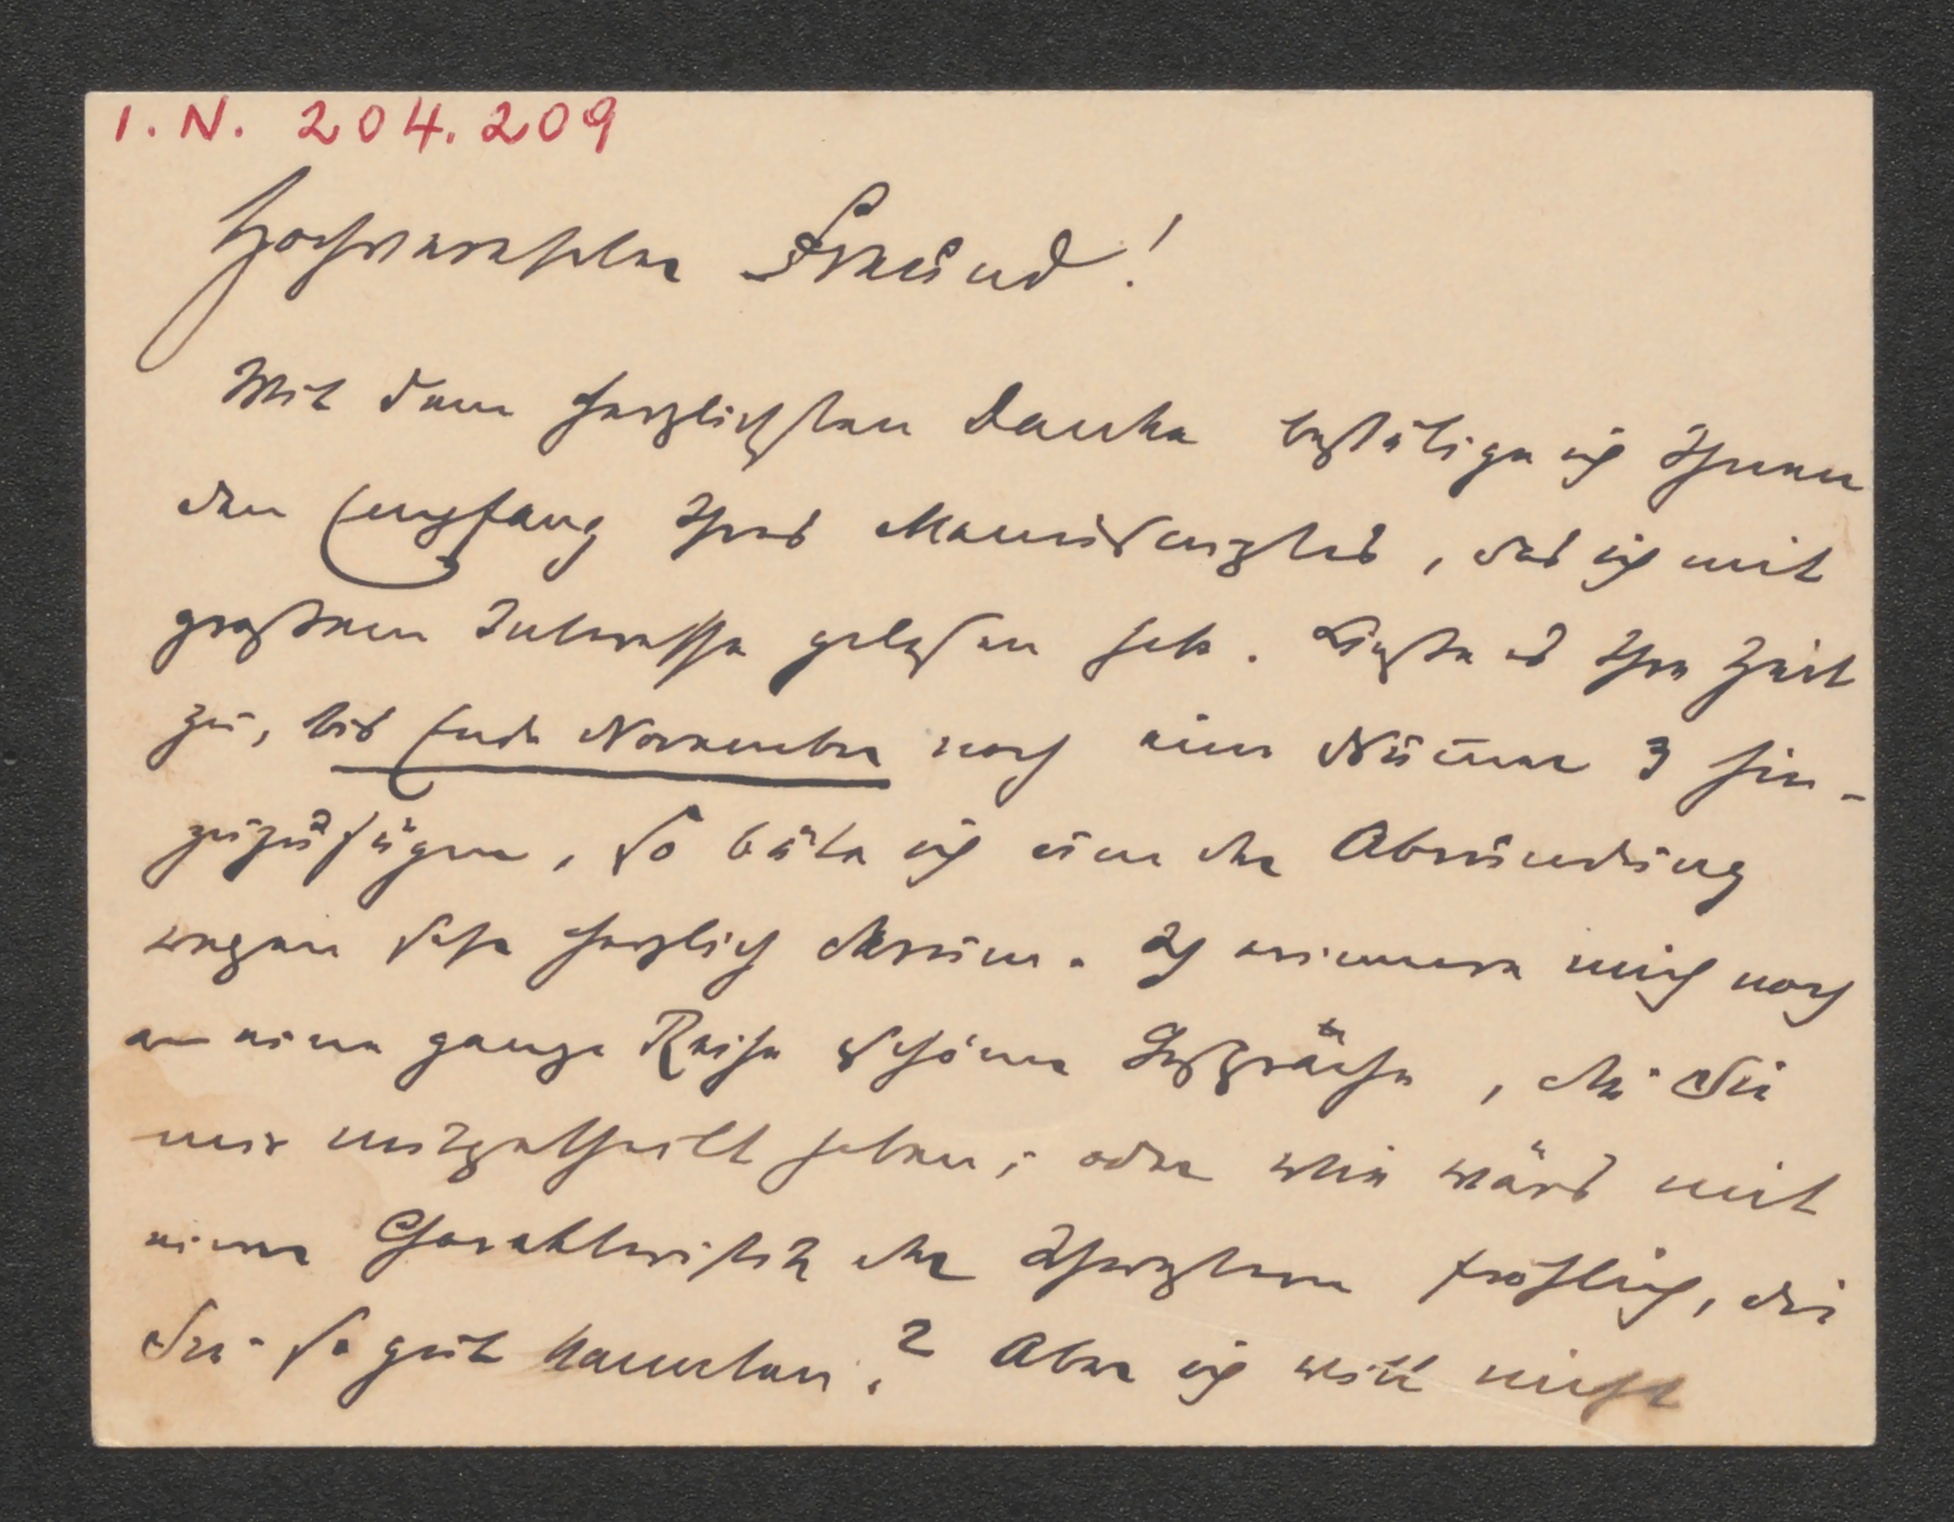 I.N. 204.209
Hochverehrter Freund!
Mit dem herzlichsten Danke bestätige ich Ihnen
den Empfang Ihres Manuscriptes, das ich mit
großem Interesse gelesen habe. Ließe es Ihre Zeit
zu, bis Ende November noch eine Num̄er 3 hin-
zuzufügen, so bäte ich um der Abrundung
wegen sehr herzlich darum. Ich erinnere mich noch
an eine ganze Reihe schöner Gespräche, die Sie
mir mitgetheilt haben; oder wie wärs mit
einer Charakteristik der Schwestern Fröhlich, die
Sie so gut kannten? Aber ich will nicht